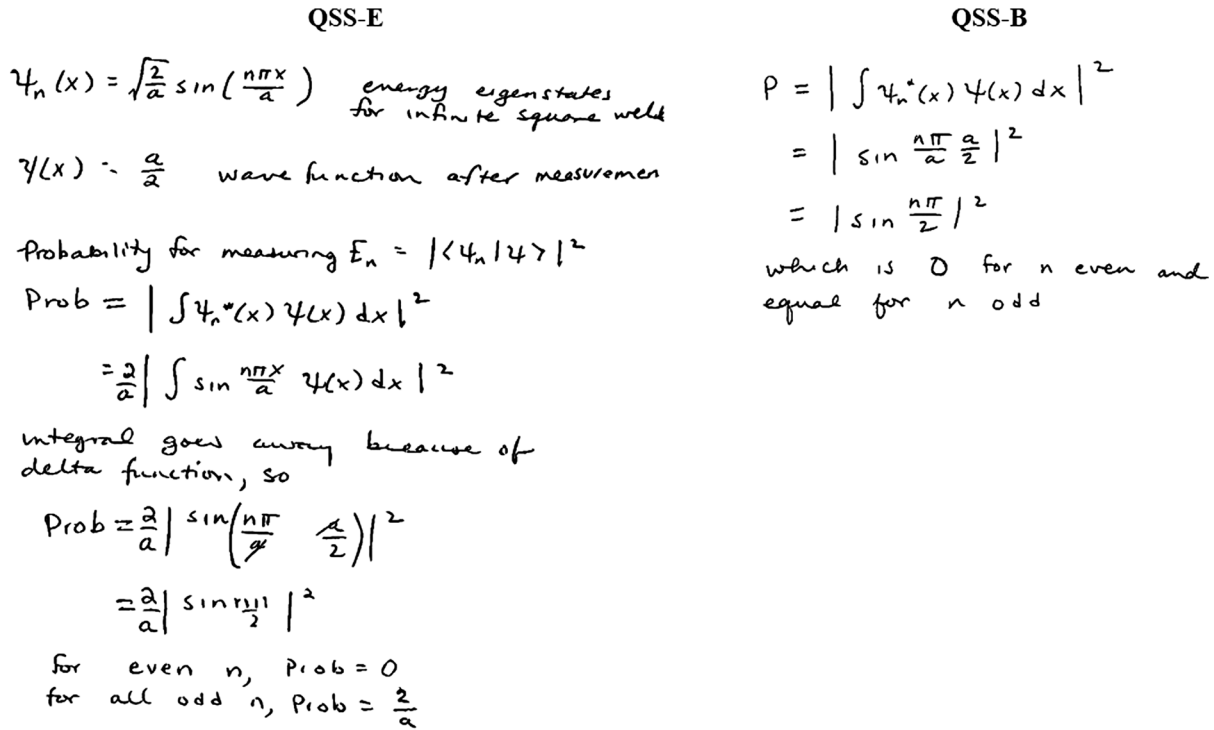 QSS-E
ψₙ(x) = √(2/a) sin(nπx/a) energy eigenstates
for infinite square well
ψ(x) = a/2 wave function after measuremen
Probability for measuring Eₙ = |<ψₙ|ψ>|²
Prob = |∫ψₙ*(x) ψ(x) dx|²
= 2/a |∫ sin nπx/a ψ(x) dx|²
integral goes away because of
delta function, so
Prob = 2/a |sin(nπ/a a/2)|²
= 2/a |sin nπ/2|²
for even n, Prob = 0
for all odd n, Prob = 2/a
QSS-B
P = |∫ψₙ*(x) ψ(x) dx|²
= |sin nπ/a a/2|²
= |sin nπ/2|²
which is 0 for n even and
equal for n odd